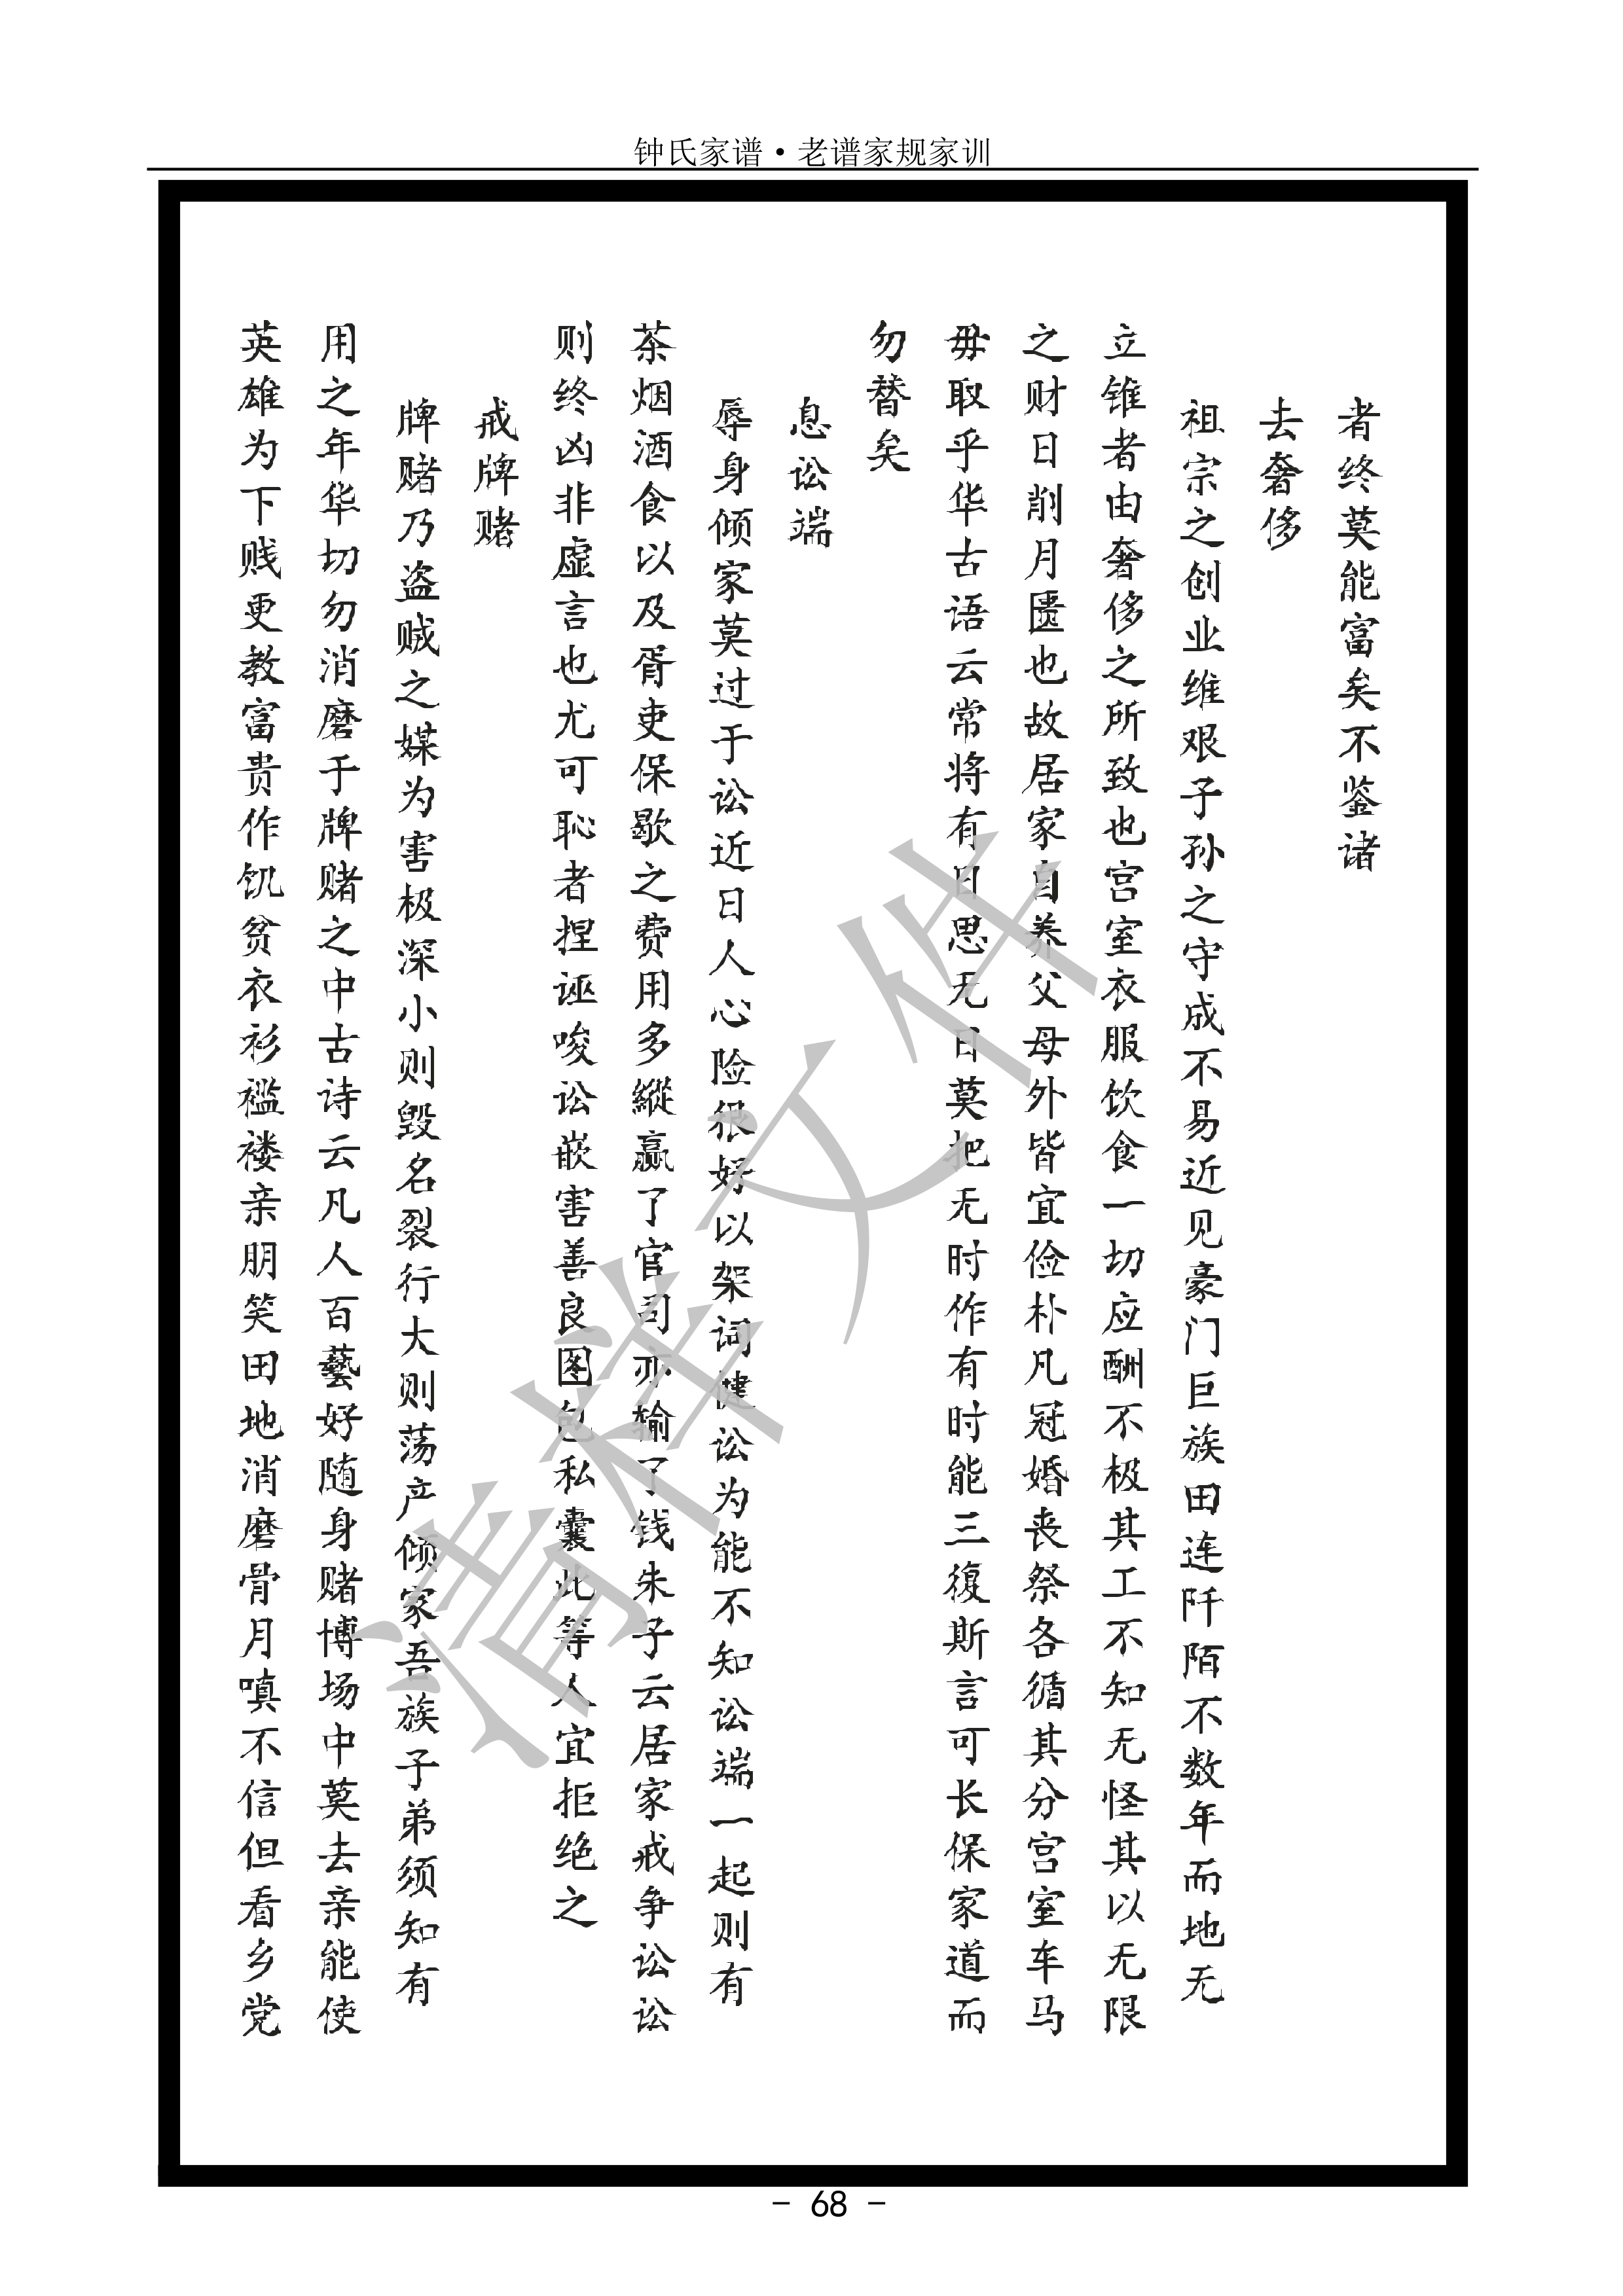 钟氏家谱·老谱家规家训
者终莫能富矣不鉴诸
去奢侈
祖宗之创业维艰子孙之守成不易近见豪门巨族田连阡陌不数年而地无
立锥者由奢侈之所致也宫室衣服饮食一切应酬不极其工不知无怪其以无限
之财日削月匮也故居家自养父母外皆宜俭朴凡冠婚丧祭各循其分宫室车马
毋取乎华古语云常将有日思无日莫把无时作有时能三復斯言可长保家道而
勿替矣
息讼端
辱身倾家莫过于讼近日人心险很好以架词健讼为能不知讼端一起则有
茶烟酒食以及胥吏保歇之费用多縱赢了官司亦输了钱朱子云居家戒争讼讼
则终凶非虚言也尤可恥者捏诬唆讼嵌害善良图包私囊此等人宜拒绝之
戒牌赌
牌赌乃盗贼之媒为害极深小则毁名裂行大则荡产倾家吾族子弟须知有
用之年华切勿消磨于牌赌之中古诗云凡人百藝好随身赌博场中莫去亲能使
英雄为下贱更教富贵作饥贫衣衫褴褛亲朋笑田地消磨骨月嗔不信但看乡党
清样文件
- 68 -